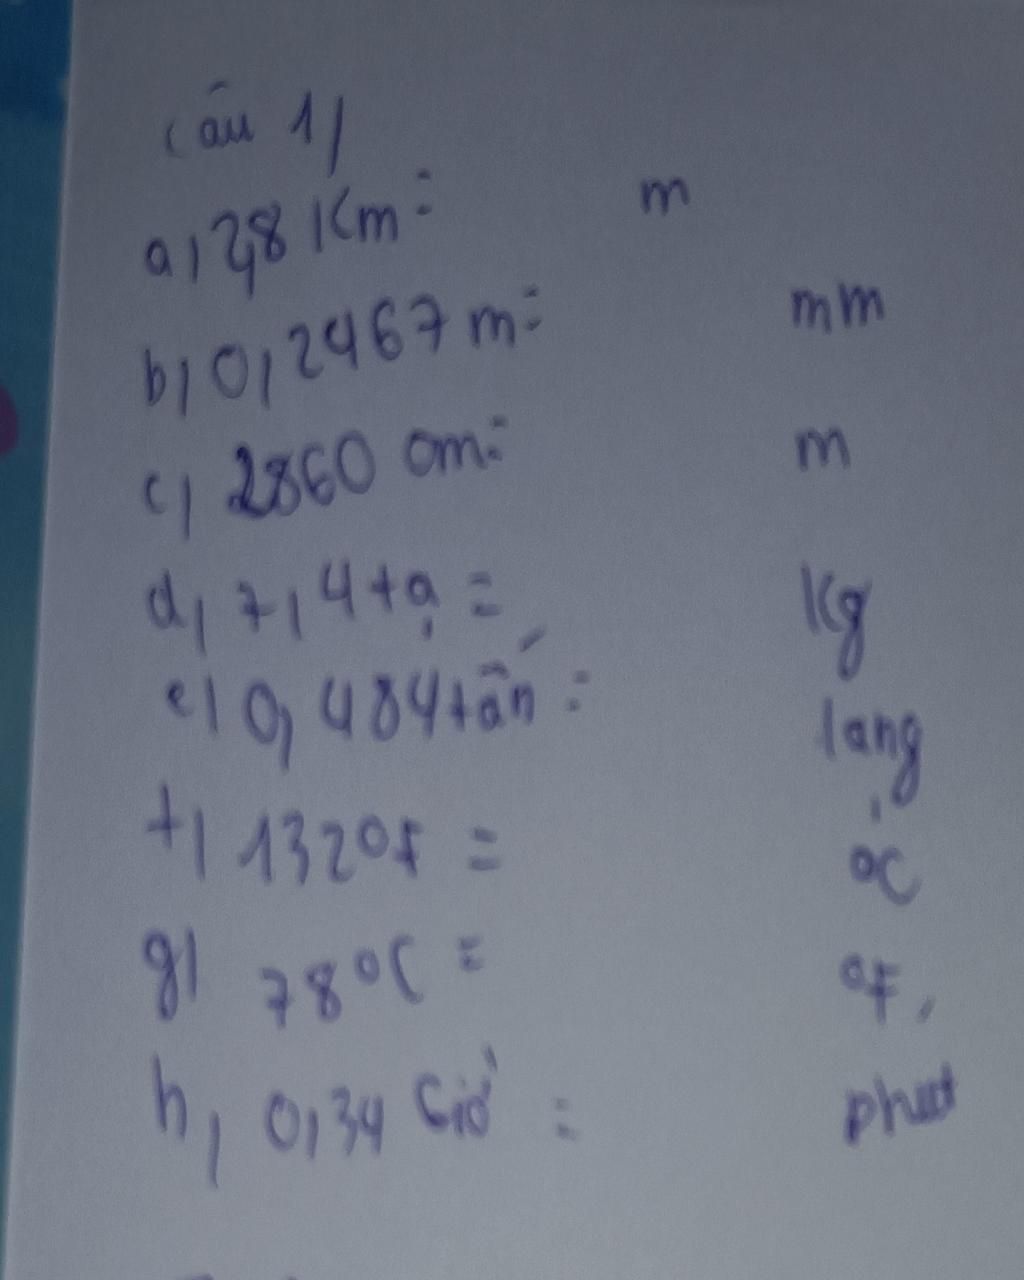 Câu 1)
a, 2,8 Km = m
b, 0,2467 m = mm
c, 2860 cm = m
d, 7,4 tạ = Kg
e, 0,484 tấn = lạng
f, 132 ºF = ºC
g, 78 ºC = ºF
h, 0,34 Giờ = phút